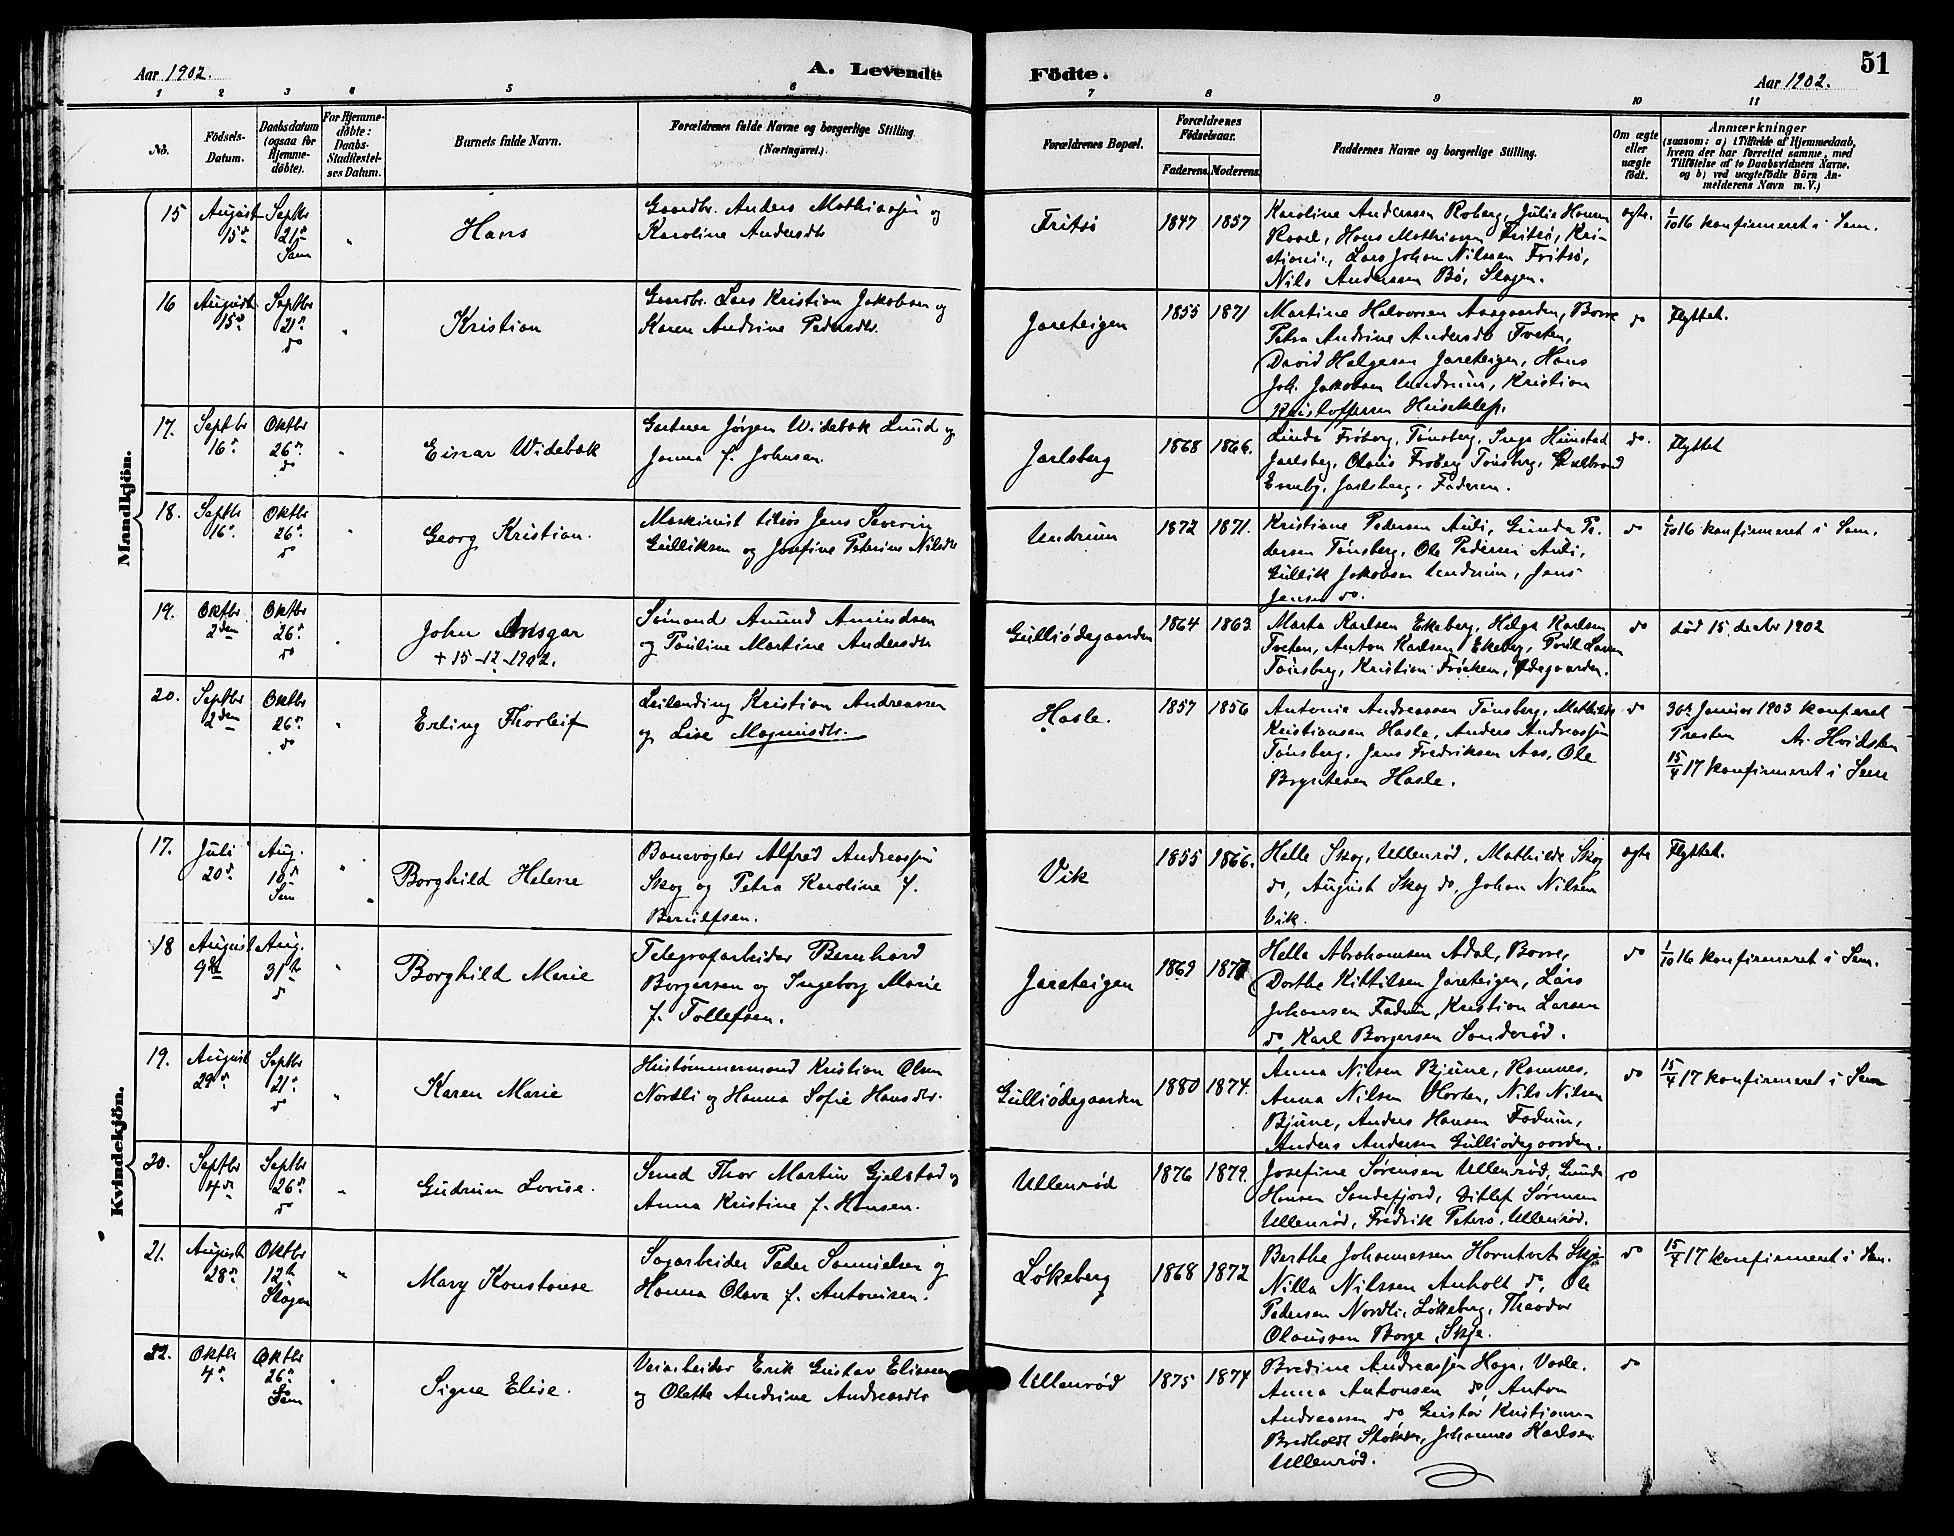 51
Aar 1902. A. Levende Födte. Aar 1902.
1 2 3 4 5 6 7 8 9 10 11
No. Födsels-Datum. Daabsdatum (ogsaa for Hjemmedöbte). For Hjemmedöbte: Daabs-Stadfæstelses Datum. Barnets fulde Navn. Forældrenes fulde Navne og borgerlige Stilling. (Næringsvei.) Forældrenes Bopæl. Forældrenes Födselsaar. Faderens. Moderens. Faddernes Navne og borgerlige Stilling. Om ægte eller uægte födt. Anmærkninger (saasom: a) i Tilfælde af Hjemmedaab, hvem der har forrettet samme, med Tilföielse af to Daabsvidners Navne. og b) ved uægtefödte Börn Anmelderens Navn m. V.)
Mandkjön.
15 August 15de Septbr 21de Sem " Hans Gaardbr. Anders Mathiassen og Karoline Andersdtr Fritsø 1847 1857 Karoline Anderssen Roberg, Julie Hansen
Hans Mathiassen Fritsø, Lars Johan Nilssen Fritsø,
Nils Anderssen Bø, Slagen. ægte. 1/10 16 konfirmeret i Sem.
16 August 15de Septbr 21de do " Kristian Gaardbr. Lars Kristian Jakobsen og Karen Andrine Pedersdtr. Jareteigen 1855 1871 Martine Halvorsen Aasgaarden, Borre
Petra Andrine Andersdtr Tveten,
David Helgesen Jareteigen, Hans
Joh. Jakobsen Undrum, Kristian
Kristoffersen do Flyttet.
17. Septbr 16de Oktbr 26de do " Einar Widebæk Gartner Jørgen Widebæk Lund og Janna f. Johnsen. Jarlsberg 1868 1866. Linda Frøberg, Tønsberg, Inga Himstad
Jarlsberg, Olaus Frøberg Tønsberg, Gulbrand
Evenby, Jarlsberg. Faderen. do. Flyttet
18. Septbr 16de Oktbr 26de do " Georg Kristian. Maskinist tilsøs Jens Severin Gulliksen og Josefine Petrine Nilsdtr Undrum 1872 1871. Kristiane Pedersen Auli, Gunda Pedersen Tønsberg, Ole Pedersen Auli,
Gullik Jakobsen Undrum, Jens
Jensen do. do 1/10 16 konfirmeret i Sem.
19. Oktbr 2den Oktbr 26de do " John Ansgar + 15-12-1902. Sømand Amund Amundsen og Pauline Martine Andersdtr Gulliødegaarden 1864 1863 Marta Karlsen Ekeberg, Helga Karlsen
Tveten, Anton Karlsen Ekeberg, Povl Larsen
Tønsberg, Kristian Ødegaarden. do død 15 decbr 1902
20. Septbr 2den Oktbr 26de do " Erling Thorleif Leilending Kristian Andreassen og Lise Magnusdtr. Hasle. 1857 1856 Antonie Andreassen Tønsberg, Mathilde
Kristiansen Hasle, Anders Andreassen
Tønsberg, Jens Fredriksen Aas, Ole
Hasle. do 30te Januar 1903
Presten A. Hvidsten
15/4 17 konfirmeret i Sem
Kvindekjön.
17. Juli 20de Aug. 10de Sem " Borghild Helene Banevogter Alfred Andreassen Skog og Petra Karoline f. Berulfsen. Vik 1855 1866. Helle Skog, Ullenrød, Mathilde Skog
do, August Skog do, Johan Nilsen
Vik. ægte Flyttet.
18 August 9de Aug. 31te do " Borghild Marie Telegrafarbeider Bernhard Borgersen og Ingeborg Marie f. Tollefsen. Jareteigen 1869 Helle Abrahamsen Adal, Borre,
Dorthe Kittilsen Jareteigen, Lars
Johansen Fadum, Kristian Larsen
do, Karl Borgersen Sanderød. do 1/10 16 konfirmeret i Sem.
19. August 29de Septbr 21de do " Karen Marie Hustømmermand Kristian Olsen Nordli og Hanna Sofie Hansdtr. Gulliødegaarden 1880 1874. Anna Nilsen Bjune, Ramnes,
Anna Nilsen Horten, Nils Nilsen
Bjune, Anders Hansen Fadum,
Anders Andersen Gulliødegaarden. do 15/4 17 konfirmeret i Sem
20. Septbr 4de Septbr 26de do " Gudrun Lovise. Smed Thor Martin Gjelstad og Anna Kristine f. Hansen. Ullenrød 1876 1879. Josefine Sørensen Ullenrød, Gunda
Hansen Sandefjord, Ditlef Sørensen
Ullenrød, Fredrik Peters, Ullenrød. do
21. August 28de Oktbr 12te Slagen " Mary Konstanse Sagarbeider Peder Samuelsen og Hanna Olava f. Antonisen. Løkeberg 1868 1872 Berthe Johannessen Horntvet Skje
Nilla Nilssen Anholt do, Ole
Pedersen Nordli, Løkeberg, Theodor
Olaussen Borge, Skje. do 15/4 17 konfirmeret i Sem.
22. Oktbr 4de Oktbr 26de Sem " Signe Elise. Veiarbeider Erik Gustav Eliassen og Olette Andrine Andreasdtr Ullenrød 1875 1874 Bredine Andreassen Hagn, Vaale.
Anna Antonsen do, Anton
Andreassen do Gustav Kristiansen
Bredholdt Stokke, Johannes Karlsen
Ullenrød. do